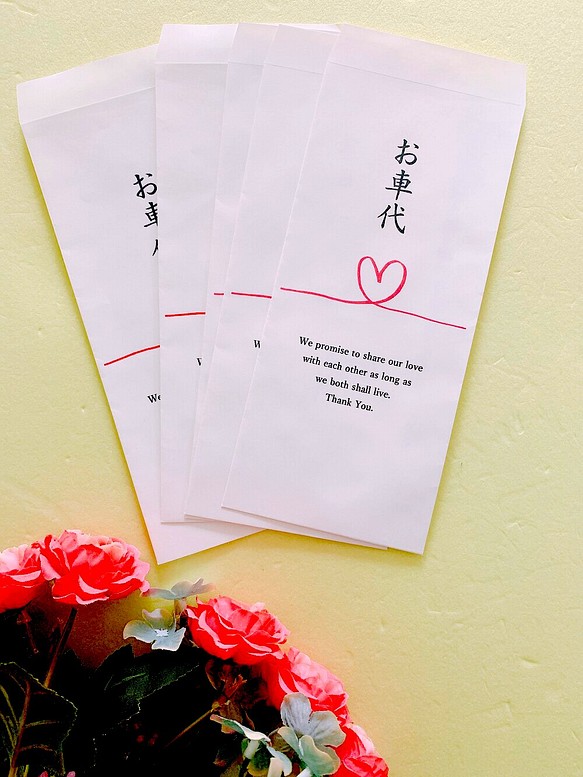 お車代
We promise to share our love
with each other as long as
we both shall live.
Thank You.
お車
We
W
W